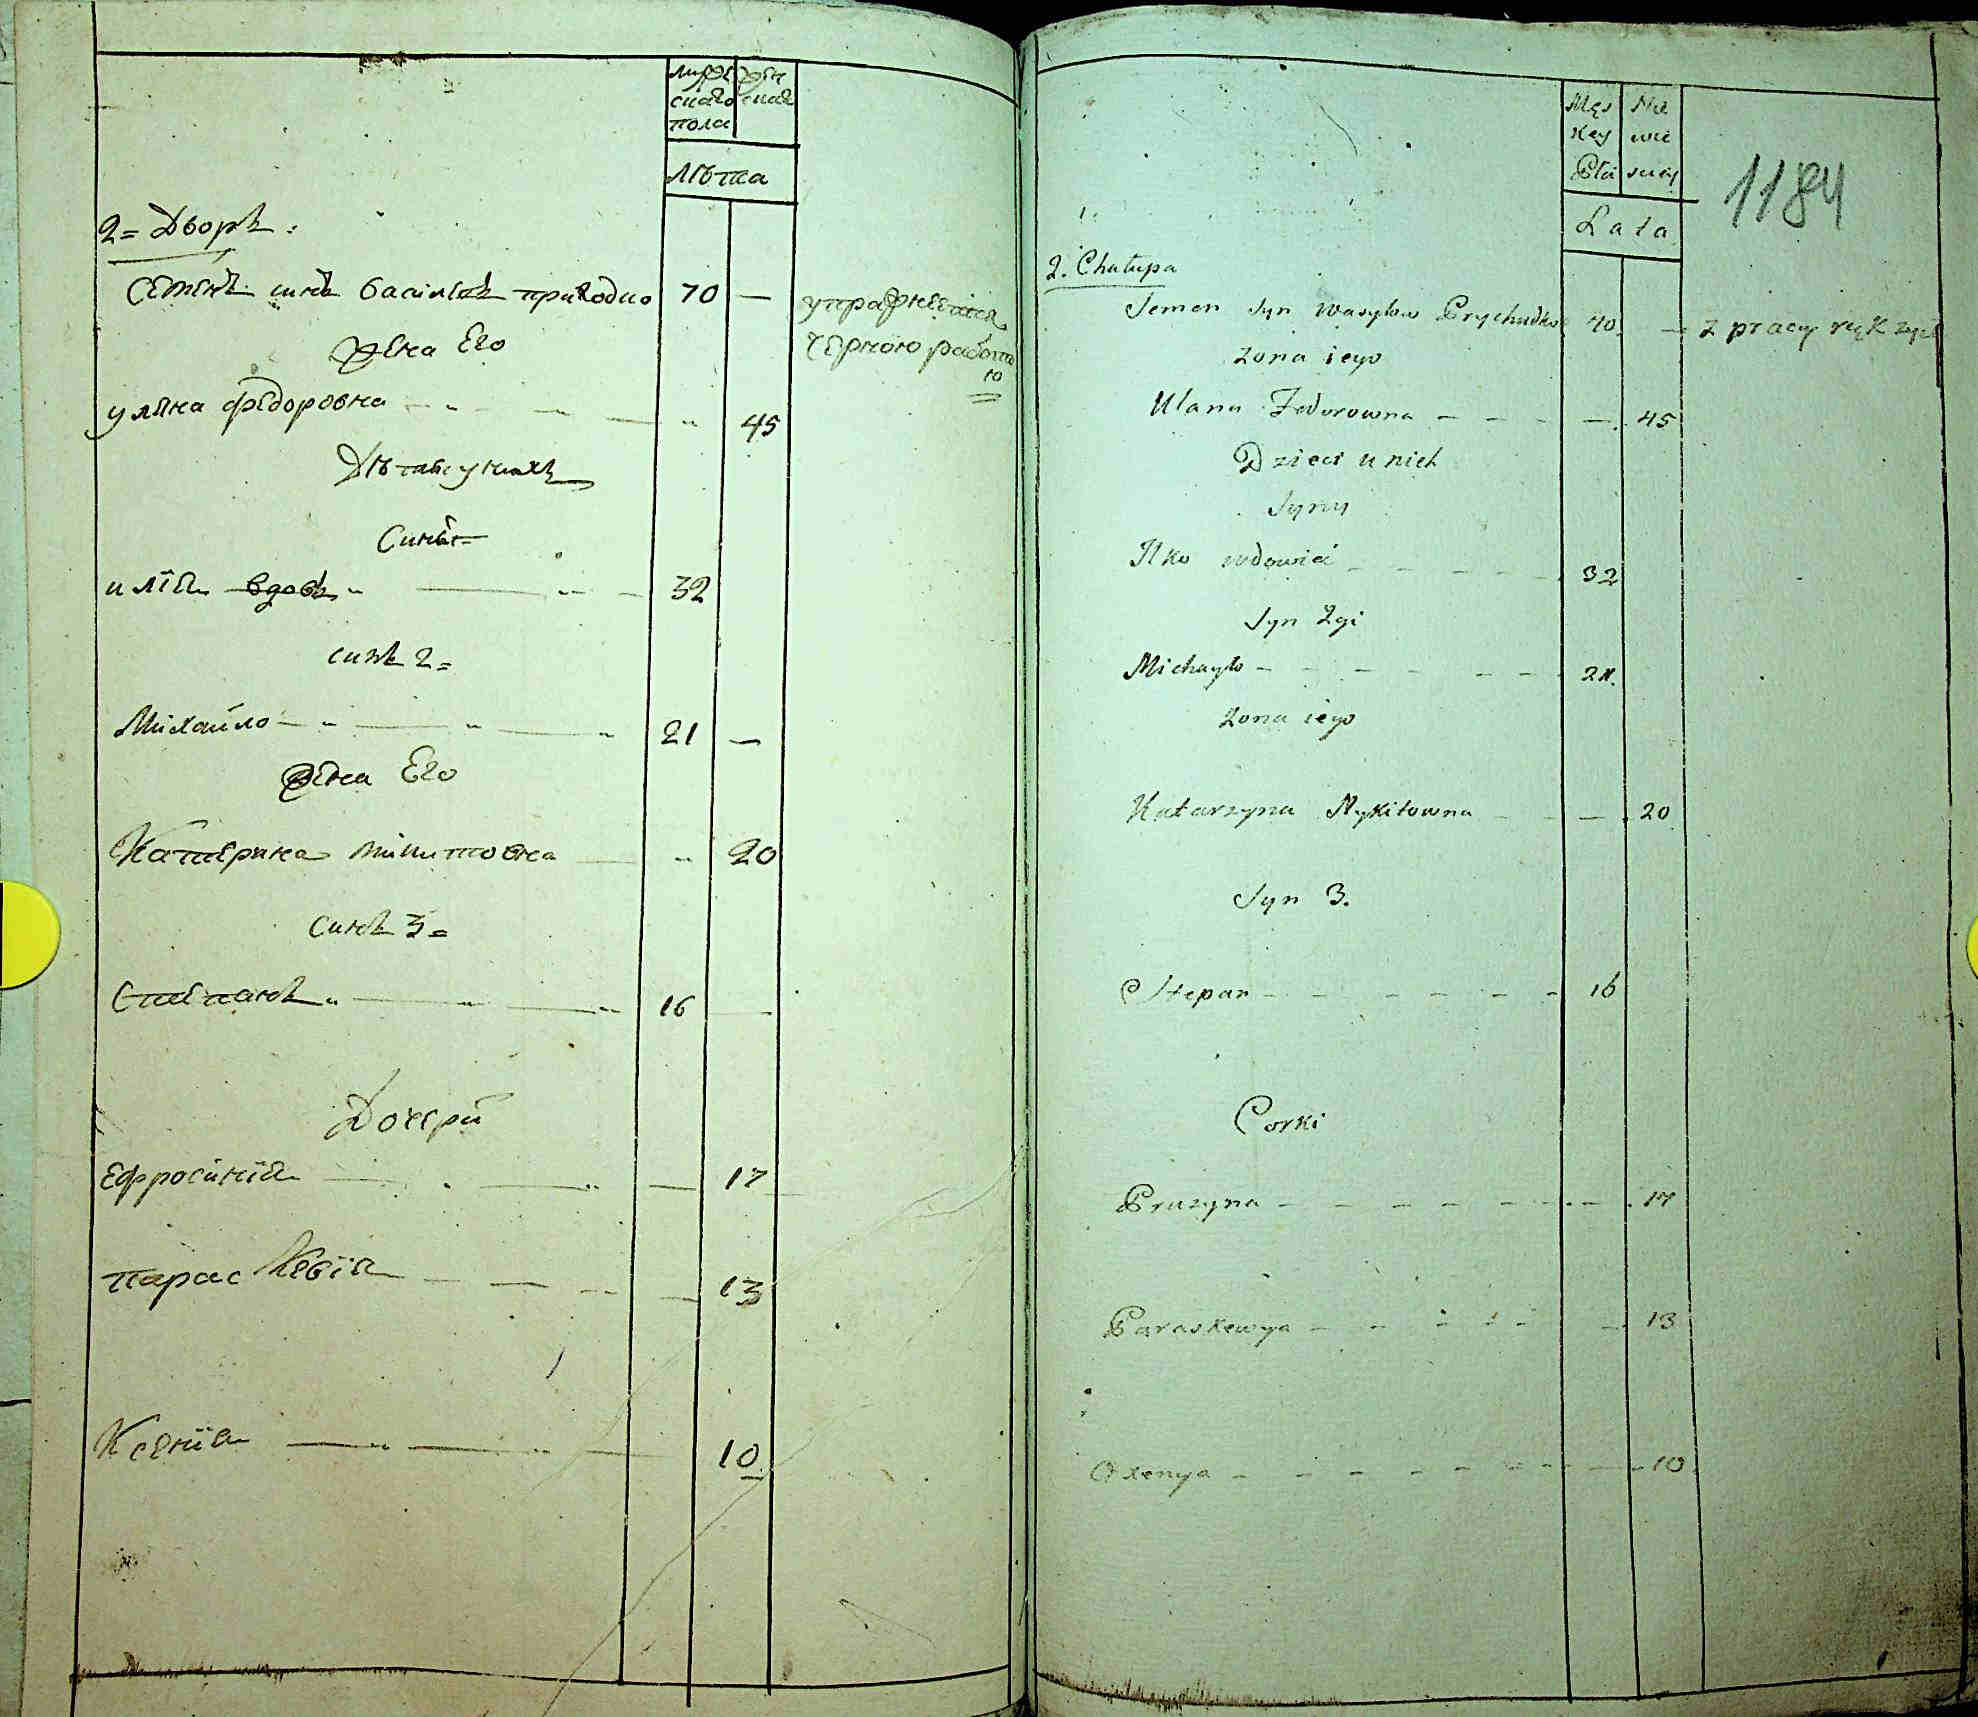 мужескаго пола
женская
лѣта
2= Дворъ:
Семенъ синъ василевъ приходко 70 —
упражнѣтися
чорною работою
жена Его
уляна федоровна 45
Дѣти у нихъ
Синъ
илїя вдовъ 32
синъ 2=
Михайло 21 —
жена Его
Катерина микитовна 20
синъ 3=
Степанъ 16
Дочери
Ефросинїя 17
параскевїя 13
Ксенїя 10
Męs
key
Płci
Nie
wie
sciey
Lata
1184
2. Chałupa
Semen Syn Wasylow Prychodko 70 — z pracy rąk żyie
Zona iego
Ulana Fedorowna — 45
Dzieci u nich
Syny
Ilko wdowiec 32
Syn 2gi
Michayło 21.
Zona iego
Katarzyna Mykitowna — 20
Syn 3.
Stepan 16
Corki
Pruzyna 17
Paraskewya 13
Oxenya 10